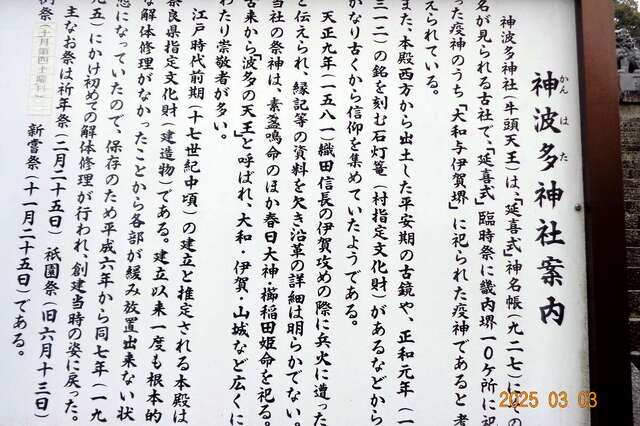 神波多神社案内
かん はた
神波多神社(牛頭天王)は、「延喜式」神名帳(九二七)にその
名が見られる古社で、「延喜式」臨時祭に畿内堺一〇ケ所に祀
った疫神のうち、「大和与伊賀堺」に祀られた疫神であると考
えられている。
また、本殿西方から出土した平安期の古鏡や、正和元年(一
三一二)の銘を刻む石灯篭(村指定文化財)があるなどから
かなり古くから信仰を集めていたようである。
天正九年(一五八一)織田信長の伊賀攻めの際に兵火に遭った
と伝えられ、縁記等の資料を欠き沿革の詳細は明らかでない。
当社の祭神は、素盞鳴命のほか春日大神・櫛稲田姫命を祀る。
古来から「波多の天王」と呼ばれ、大和・伊賀・山城など広くに
わたり崇敬者が多い。
江戸時代前期(十七世紀中頃)の建立と推定される本殿は
奈良県指定文化財(建造物)である。建立以来一度も根本的
な解体修理がなかったことから各部が緩み放置出来ない状
態になっていたので、保存のため平成六年から同七年(一九
九五)にかけ初めての解体修理が行われ、創建当時の姿に戻った。
主なお祭は祈年祭(二月二十五日) 祇園祭(旧六月十三日)
例祭(十月第四日曜日) 新嘗祭(十一月二十五日)である。
2025 03 03